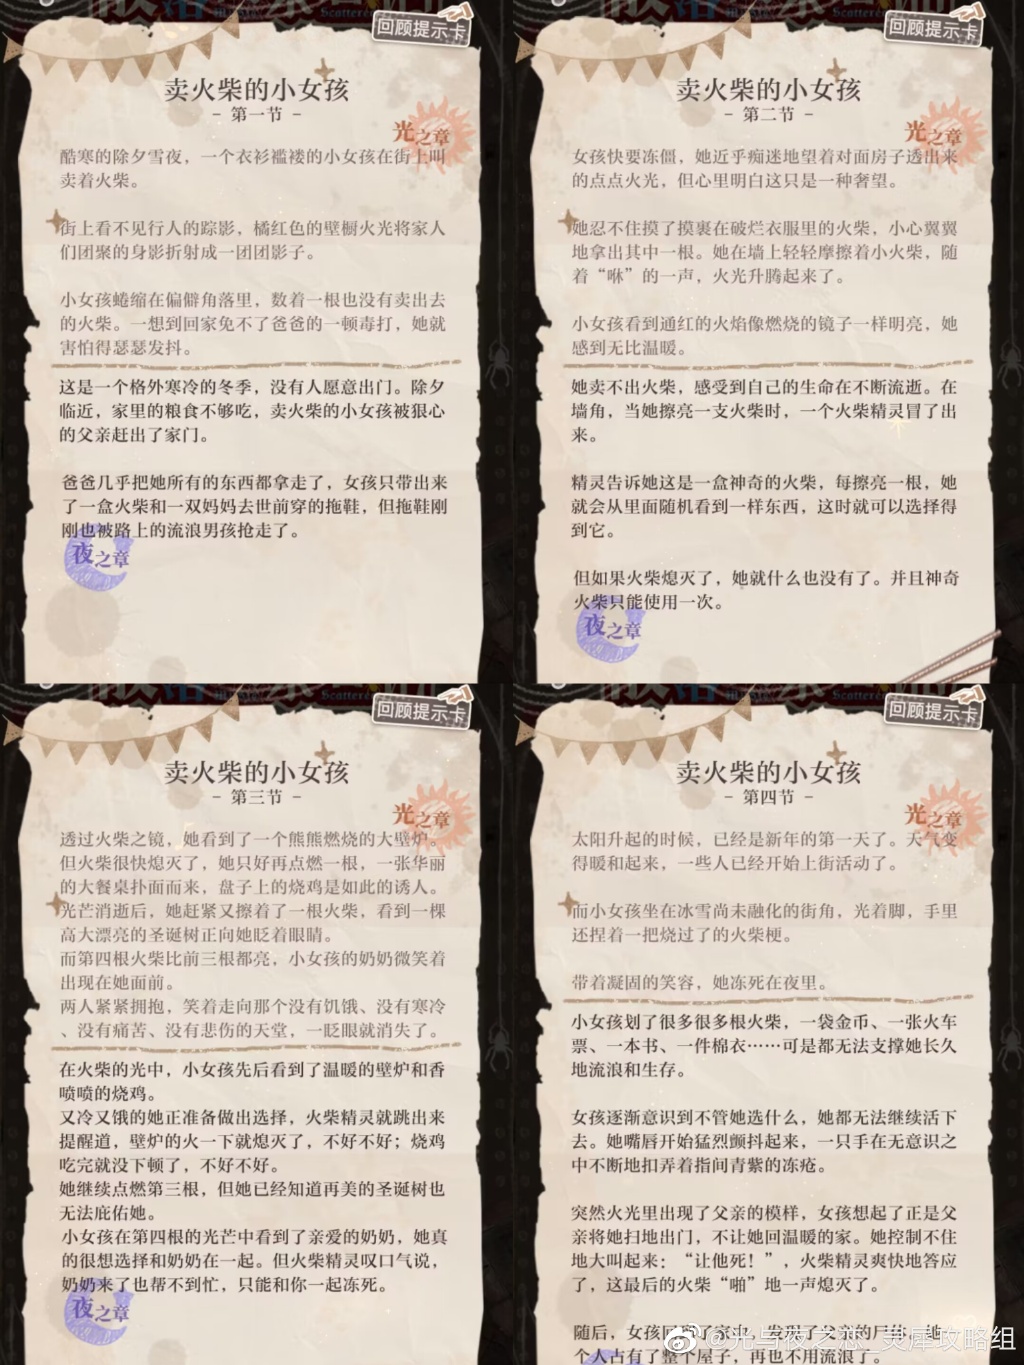 回顾提示卡
卖火柴的小女孩
- 第一节 -
光之章
酷寒的除夕雪夜，一个衣衫褴褛的小女孩在街上叫
卖着火柴。
街上看不见行人的踪影，橘红色的壁橱火光将家人
们团聚的身影折射成一团团影子。
小女孩蜷缩在偏僻角落里，数着一根也没有卖出去
的火柴。一想到回家免不了爸爸的一顿毒打，她就
害怕得瑟瑟发抖。
这是一个格外寒冷的冬季，没有人愿意出门。除夕
临近，家里的粮食不够吃，卖火柴的小女孩被狠心
的父亲赶出了家门。
爸爸几乎把她所有的东西都拿走了，女孩只带出来
了一盒火柴和一双妈妈去世前穿的拖鞋，但拖鞋刚
刚也被路上的流浪男孩抢走了。
夜之章
回顾提示卡
卖火柴的小女孩
- 第二节 -
光之章
女孩快要冻僵，她近乎痴迷地望着对面房子透出来
的点点火光，但心里明白这只是一种奢望。
她忍不住摸了摸裹在破烂衣服里的火柴，小心翼翼
地拿出其中一根。她在墙上轻轻摩擦着小火柴，随
着“咻”的一声，火光升腾起来了。
小女孩看到通红的火焰像燃烧的镜子一样明亮，她
感到无比温暖。
她卖不出火柴，感受到自己的生命在不断流逝。在
墙角，当她擦亮一支火柴时，一个火柴精灵冒了出
来。
精灵告诉她这是一盒神奇的火柴，每擦亮一根，她
就会从里面随机看到一样东西，这时就可以选择得
到它。
但如果火柴熄灭了，她就什么也没有了。并且神奇
火柴只能使用一次。
夜之章
回顾提示卡
卖火柴的小女孩
- 第三节 -
光之章
透过火柴之镜，她看到了一个熊熊燃烧的大壁炉。
但火柴很快熄灭了，她只好再点燃一根，一张华丽
的大餐桌扑面而来，盘子上的烧鸡是如此的诱人。
光芒消逝后，她赶紧又擦着了一根火柴，看到一棵
高大漂亮的圣诞树正向她眨着眼睛。
而第四根火柴比前三根都亮，小女孩的奶奶微笑着
出现在她面前。
两人紧紧拥抱，笑着走向那个没有饥饿、没有寒冷
、没有痛苦、没有悲伤的天堂，一眨眼就消失了。
在火柴的光中，小女孩先后看到了温暖的壁炉和香
喷喷的烧鸡。
又冷又饿的她正准备做出选择，火柴精灵就跳出来
提醒道，壁炉的火一下就熄灭了，不好不好；烧鸡
吃完就没下顿了，不好不好。
她继续点燃第三根，但她已经知道再美的圣诞树也
无法庇佑她。
小女孩在第四根的光芒中看到了亲爱的奶奶，她真
的很想选择和奶奶在一起。但火柴精灵叹口气说，
奶奶来了也帮不到忙，只能和你一起冻死。
夜之章
回顾提示卡
卖火柴的小女孩
- 第四节 -
光之章
太阳升起的时候，已经是新年的第一天了。天气变
得暖和起来，一些人已经开始上街活动了。
而小女孩坐在冰雪尚未融化的街角，光着脚，手里
还捏着一把烧过了的火柴梗。
带着凝固的笑容，她冻死在夜里。
小女孩划了很多很多根火柴，一袋金币、一张火车
票、一本书、一件棉衣……可是都无法支撑她长久
地流浪和生存。
女孩逐渐意识到不管她选什么，她都无法继续活下
去。她嘴唇开始猛烈颤抖起来，一只手在无意识之
中不断地扣弄着指间青紫的冻疮。
突然火光里出现了父亲的模样，女孩想起了正是父
亲将她扫地出门，不让她回温暖的家。她控制不住
地大叫起来：“让他死！”，火柴精灵爽快地答应
了，这最后的火柴“啪”地一声熄灭了。
随后，女孩回到了家中，发现了父亲的尸体，她一
个人占有了整个屋子，再也不用流浪了。
@光与夜之恋_灵犀攻略组